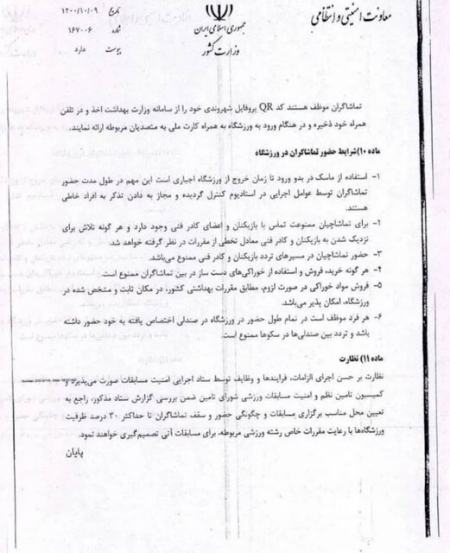 معاونت امنیتی و انتظامی
جمهوری اسلامی ایران
وزارت کشور
تاریخ ۱۴۰۰/۱۰/۰۹
شماره ۱۶۷۰۰۶
پیوست دارد
تماشاگران موظف هستند کد QR پروفایل شهروندی خود را از سامانه وزارت بهداشت اخذ و در تلفن
همراه خود ذخیره و در هنگام ورود به ورزشگاه به همراه کارت ملی به متصدیان مربوطه ارائه نمایند.
ماده ۱۰) شرایط حضور تماشاگران در ورزشگاه
۱- استفاده از ماسک در بدو ورود تا زمان خروج از ورزشگاه اجباری است این مهم در طول مدت حضور
تماشاگران توسط عوامل اجرایی در استادیوم کنترل گردیده و مجاز به دادن تذکر به افراد خاطی
هستند.
۲- برای تماشاچیان ممنوعیت تماس با بازیکنان و اعضای کادر فنی وجود دارد و هر گونه تلاش برای
نزدیک شدن به بازیکنان و کادر فنی معادل تخطی از مقررات در نظر گرفته خواهد شد.
۳- حضور تماشاچیان در مسیرهای تردد بازیکنان و کادر فنی ممنوع می‌باشد.
۴- هر گونه خرید، فروش و استفاده از خوراکی‌های دست ساز در بین تماشاگران ممنوع است.
۵- فروش مواد خوراکی در صورت لزوم، مطابق مقررات بهداشتی کشور، در مکان ثابت و مشخص شده در
ورزشگاه، امکان پذیر می‌باشد.
۶- هر فرد موظف است در تمام طول حضور در ورزشگاه در صندلی اختصاص یافته به خود حضور داشته
باشد و تردد بین صندلی‌ها در سکوها ممنوع است.
ماده ۱۱) نظارت
نظارت بر حسن اجرای الزامات، فرایندها و وظایف توسط ستاد اجرایی امنیت مسابقات صورت می‌پذیرد و
کمیسیون تامین نظم و امنیت مسابقات ورزشی شورای تامین ضمن بررسی گزارش ستاد مذکور، راجع به
تعیین محل مناسب برگزاری مسابقات و چگونگی حضور و سقف تماشاگران تا حداکثر ۳۰ درصد ظرفیت
ورزشگاه‌ها با رعایت مقررات خاص رشته ورزشی مربوطه، برای مسابقات آتی تصمیم‌گیری خواهند نمود.
پایان